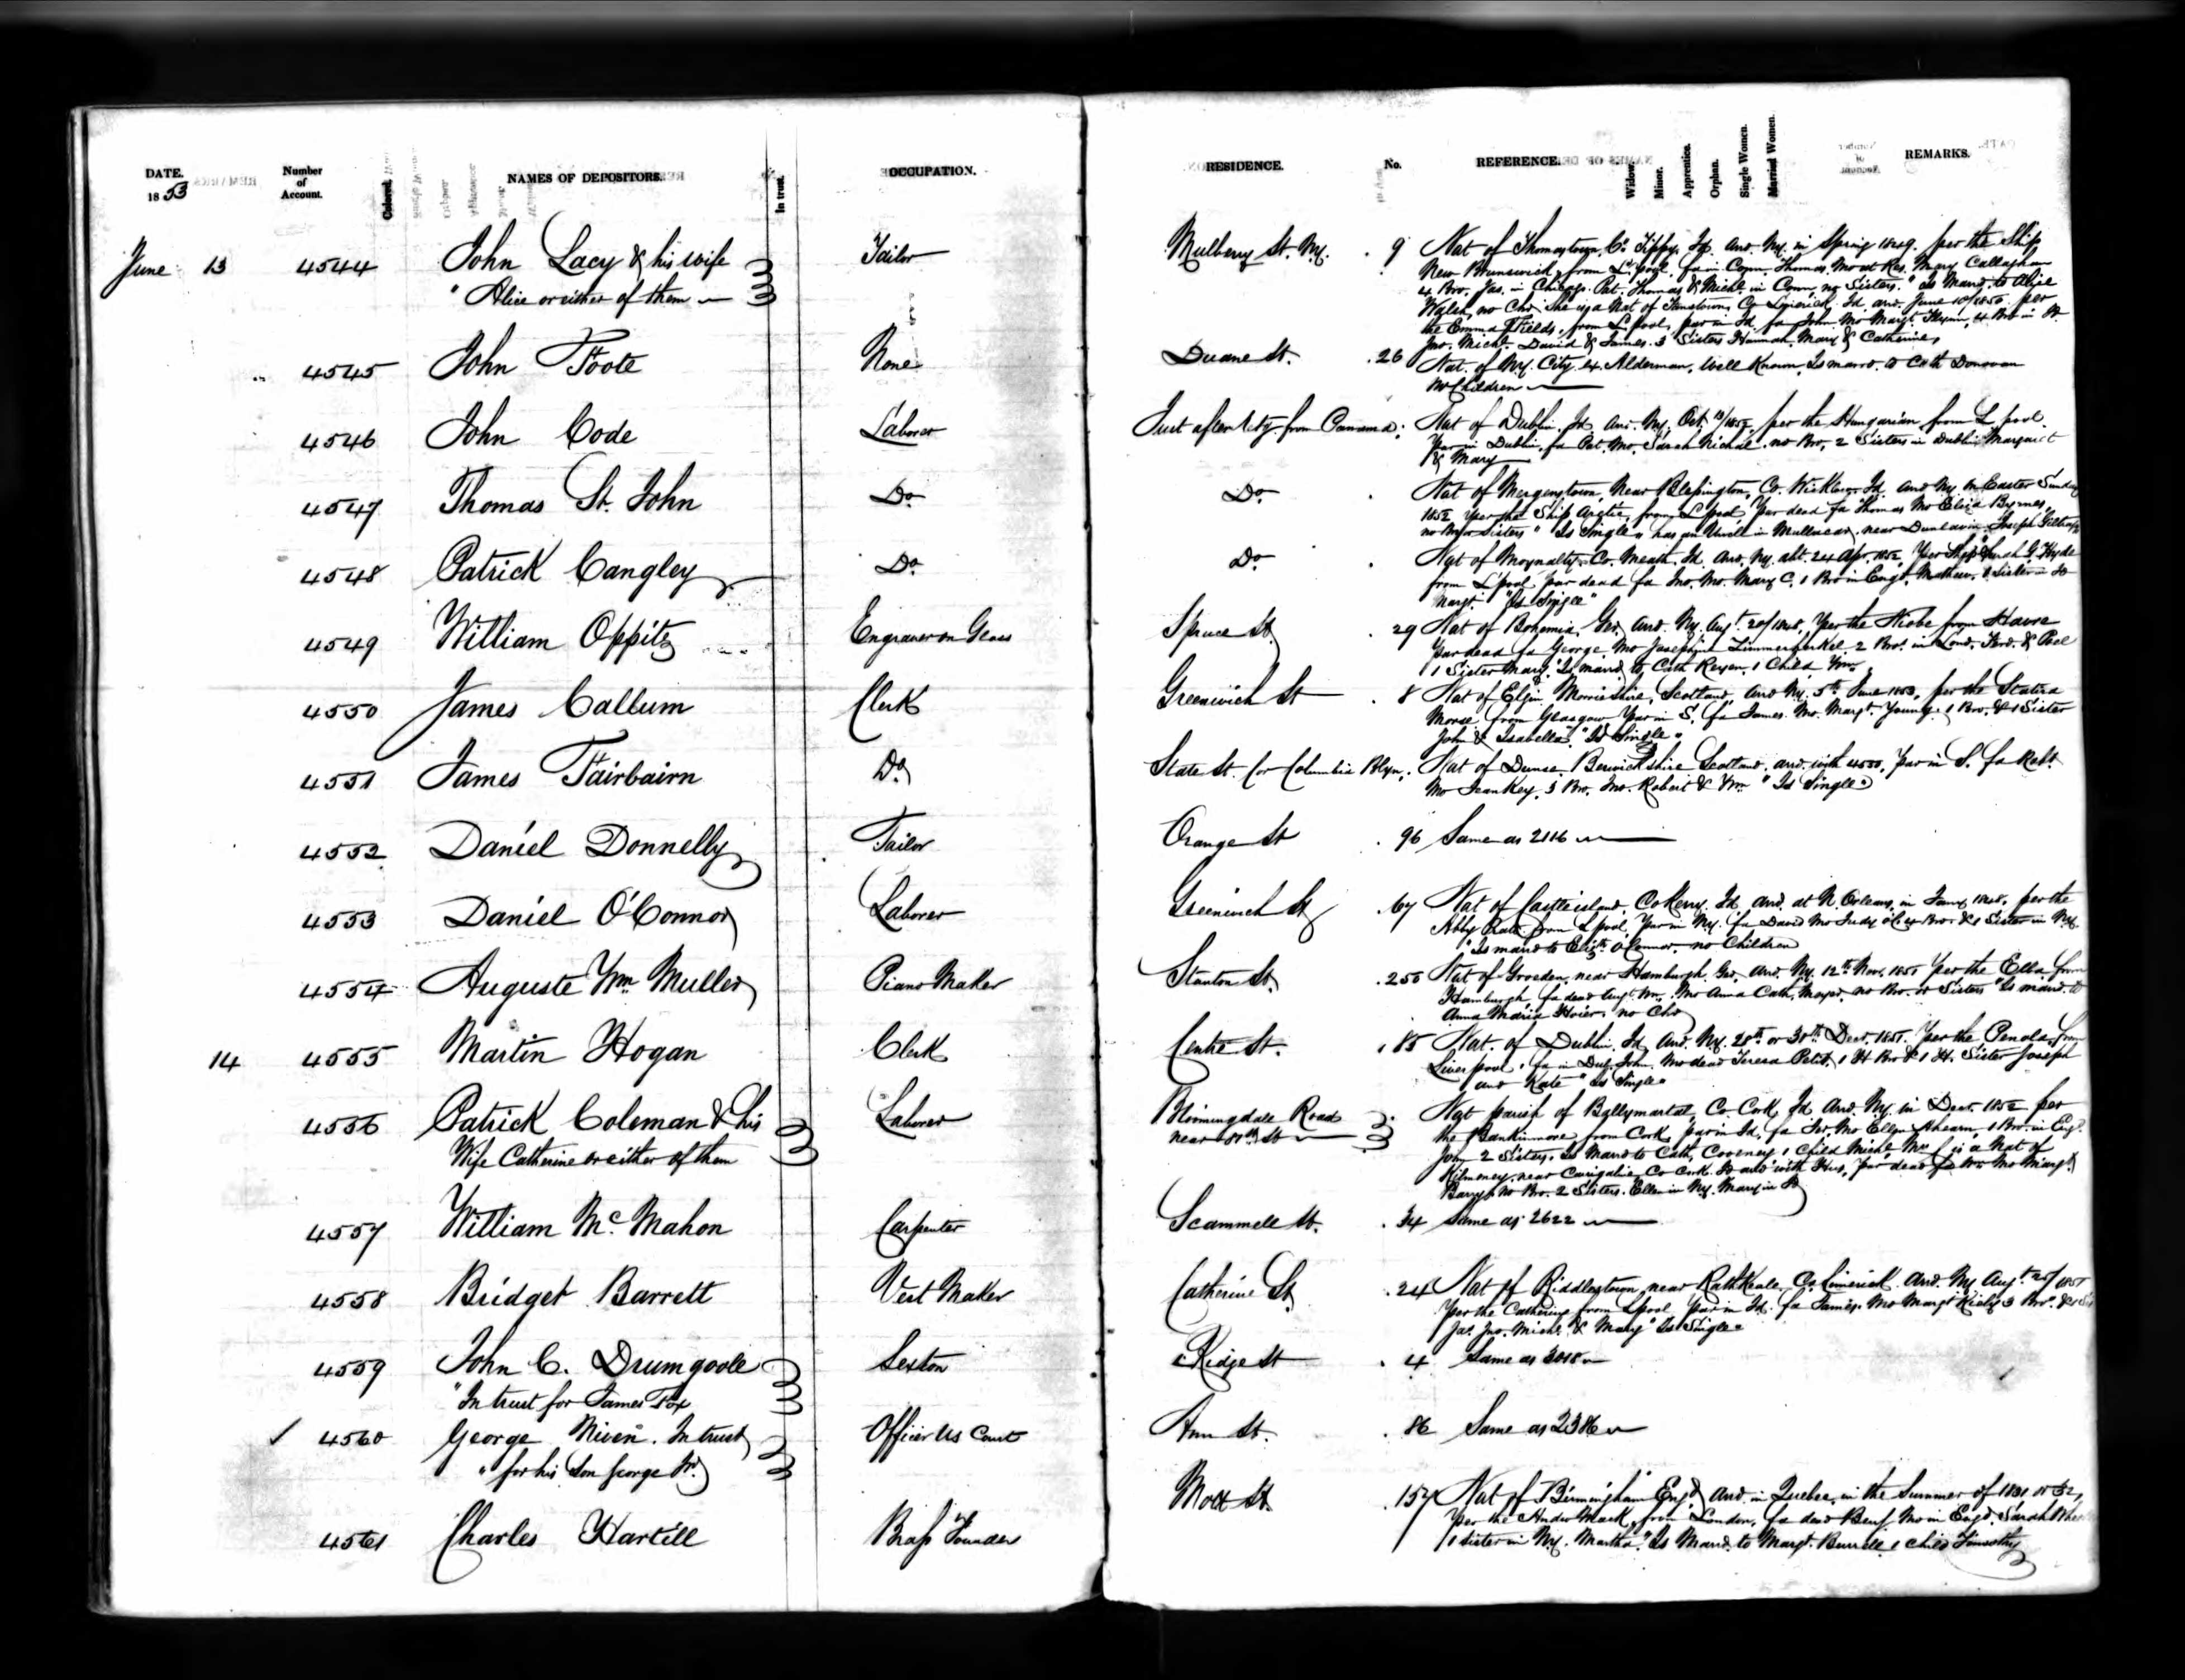 DATE. Number of Account. Colored. NAMES OF DEPOSITORS. In trust. OCCUPATION. RESIDENCE. No. REFERENCE. Widow. Minor. Apprentice. Orphan. Single Women. Married Women. REMARKS.
1853
June 13 4544 John Lacy & his wife Tailor Mulberry St. Ny. 9 Nat of Thomastown, Co. Tippy. Id. arrd. Ny. in Spring 1849. per the Ship
" Alice or either of them New Brunswick, from L'pool, fa in Conn. Thomas. Mo at Res. Mary Callaghan
4 Bro. Jas. in Chicago. Pat. Thomas & Michl. in Conn, no Sisters. "Is Marrd. to Alice
Walsh, no Chn. She is a Nat of Co Limerick, Id. arrd. June 10/1850. per
the Emma Fields, from L'pool, par in Id. fa John. Mo Margt. 4 Bro in
Jno. Michl. David & James. 3 Sisters Hannah. Mary & Catherine
4545 John Foote None Duane St. 26 Nat. of Ny. City. ex. Alderman. Well Known. Is marrd. to Cath Donovan
No Children
4546 John Code Laborer Just after City from Canada. Nat of Dublin. Id. Arr. Ny. Oct. per the Hungarian from L'pool.
Par in Dublin. fa Pat. Mo. Sarah no Bro, 2 Sisters in Dublin Margaret
& Mary
4547 Thomas St. John Do. Do. Nat of Near Blessington, Co. Wicklow. Id. arrd Ny. on Easter Sunday
1852 per the Ship Arctic, from L'pool. Par dead fa Thomas Mo Eliza Byrnes,
no Bro or Sisters " Is Single " has an Uncle in near Dunlavin. Joseph
4548 Patrick Cangley Do. Do. Nat of Moynalty. Co. Meath. Id. Arrd. Ny. abt. 24 Apr. 1852, Per Ship Sarah G. Hyde
from L'pool, par dead fa Jno. Mo. Mary C. 1 Bro in Engd. Mathew. 1 Sister in do
Margt. "Is Single"
4549 William Oppitz Engraver on Glass Spruce St. 29 Nat of Bohemia. Ger. arrd. Ny. Augt. 20/1848, Per the from Havre
Par dead fa George Mo Josephine 2 Bro. in Lond. Ferd. &
1 Sister Mary. Is marrd. to Cath 1 Child Wm.
4550 James Callum Clerk Greenwich St 8 Nat of Elgin Morrisshire, Scotland, Arrd Ny. 5th June 1853. per the Statira
Morse, from Glasgow Par in S. fa James. Mo. Margt. Young. 1 Bro. & 1 Sister
John & Isabella. "Is Single"
4551 James Fairbairn Do. State St. Cor Columbia Blyn. Nat of Dunse. Berwickshire Scotland. arrd. with 4550. Par in S. fa Robt.
Mo Jean Key. 3 Bro. Jno. Robert & Wm. "Is Single"
4552 Daniel Donnelly Tailor Orange St 96 Same as 2116
4553 Daniel O'Connor Laborer Greenwich St 67 Nat of Castleisland, Co Kerry. Id. arrd. at N. Orleans, in Jany 1848, per the
Abby Pratt from L'pool, Par in Ny. fa David Mo Judy 4 Bro. & 1 Sister in Ny.
"Is marrd to Elizth. O'Connor. no Children
4554 Auguste Wm. Muller Piano Maker Stanton St. 250 Nat of near Hamburgh. Ger. arrd. Ny. 12th Nov. 1851 per the Ella from
Hamburgh, fa dead Augt. Wm. Mo Anna Cath. no Bro. or Sisters "Is marrd. to
Anna Maria no Chn
14 4555 Martin Hogan Clerk Centre St. 85 Nat. of Dublin. Id. Arrd. Ny. 28th or 30th Decr. 1851. Per the Penola, from
Liverpool, fa in Dub. John. Mo dead Teresa 1 H. Bro & 1 H. Sister Joseph
and Kate "Is Single"
4556 Patrick Coleman & his Laborer Bloomingdale Road Nat parish of Ballymartel, Co. Cork, Id. Arrd. Ny. in Decr. 1852 per
Wife Catherine or either of them near 81st St the from Cork, par in Id. fa Mo Ellen Ahearn, 1 Bro. in Engd.
John 2 Sisters. Is Marrd to Cath. Cooney 1 Child Michl. Mrs C is a Nat of
Kilmoney. near Carrigaline, Co Cork. Id arrd with Hus, par dead fa Wm Mo Margt.
Barry. no Bro. 2 Sisters. Ellen in Ny. Mary in Id
4557 William McMahon Carpenter Scammell St. 34 Same as 2622
4558 Bridget Barrett Vest Maker Catherine St. 24 Nat of Riddlestown, near Rathkeale, Co. Limerick. arrd. Ny Augt. 20/1851
Per the Catherine from L'pool, par in Id. fa James. Mo Margt Kiely 3 Bro. & 1 Sis
Jas. Jno. Michl. & Mary "Is Single"
4559 John C. Drumgoole Sexton Ridge St 4 Same as 3018
"In trust for James Fox
4560 George Niven. In trust Officer Us Court Ann St. 86 Same as 2386
" for his Son George Jr.
4561 Charles Hartill Brass Founder Mott St. 157 Nat of Birmingham Engd. arrd. in Quebec, in the Summer of 1831 or 32,
Per the from London, fa dead Benj Mo in Engd. Sarah
1 sister in Ny. Martha. "Is Marrd. to Margt. Burrell 1 child Timothy